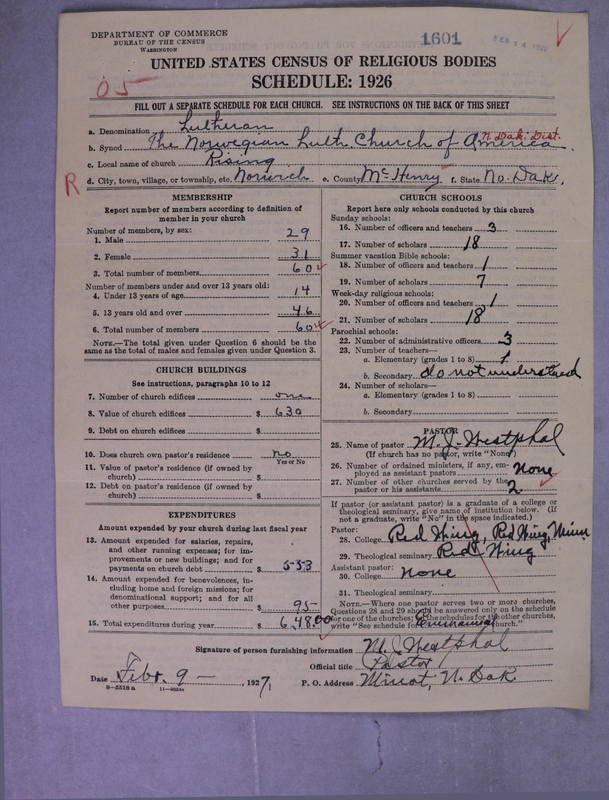 DEPARTMENT OF COMMERCE
BUREAU OF THE CENSUS
WASHINGTON
1601
FEB 14 1927
UNITED STATES CENSUS OF RELIGIOUS BODIES
SCHEDULE: 1926
05
FILL OUT A SEPARATE SCHEDULE FOR EACH CHURCH. SEE INSTRUCTIONS ON THE BACK OF THIS SHEET
a. Denomination Lutheran
N. Dak. Dist.
b. Synod The Norwegian Luth. Church of America
c. Local name of church Rising
R
d. City, town, village, or township, etc. Norwich e. County McHenry f. State No. Dak.
MEMBERSHIP
Report number of members according to definition of member in your church
Number of members, by sex:
1. Male 29
2. Female 31
3. Total number of members 60
Number of members under and over 13 years old:
4. Under 13 years of age 14
5. 13 years old and over 46
6. Total number of members 60
NOTE.—The total given under Question 6 should be the same as the total of males and females given under Question 3.
CHURCH BUILDINGS
See instructions, paragraphs 10 to 12
7. Number of church edifices one
8. Value of church edifices $ 630
9. Debt on church edifices $
10. Does church own pastor's residence? no
Yes or No
11. Value of pastor's residence (if owned by church) $
12. Debt on pastor's residence (if owned by church) $
EXPENDITURES
Amount expended by your church during last fiscal year
13. Amount expended for salaries, repairs, and other running expenses; for improvements or new buildings; and for payments on church debt $ 533
14. Amount expended for benevolences, including home and foreign missions; for denominational support; and for all other purposes $ 95-
15. Total expenditures during year $ 648.00
CHURCH SCHOOLS
Report here only schools conducted by this church
Sunday schools:
16. Number of officers and teachers 3
17. Number of scholars 18
Summer vacation Bible schools:
18. Number of officers and teachers 1
19. Number of scholars 7
Week-day religious schools:
20. Number of officers and teachers 1
21. Number of scholars 18
Parochial schools:
22. Number of administrative officers 3
23. Number of teachers—
a. Elementary (grades 1 to 8) 1
b. Secondary do not understand
24. Number of scholars—
a. Elementary (grades 1 to 8)
b. Secondary
PASTOR
25. Name of pastor M. J. Westphal
(If church has no pastor, write "None")
26. Number of ordained ministers, if any, employed as assistant pastors None
27. Number of other churches served by the pastor or his assistants 2
If pastor (or assistant pastor) is a graduate of a college or theological seminary, give name of institution below. (If not a graduate, write "No" in the space indicated.)
Pastor:
28. College Red Wing, Red Wing, Minn
29. Theological seminary Red Wing
Assistant pastor:
30. College none
31. Theological seminary
NOTE.—Where one pastor serves two or more churches, Questions 28 and 29 should be answered only on the schedule for one of the churches; on the schedules for the other churches, write "See schedule for church."
Signature of person furnishing information M. J. Westphal
Official title Pastor
Date Febr. 9 —, 1927, P. O. Address Minot, N. Dak
8—5518 a